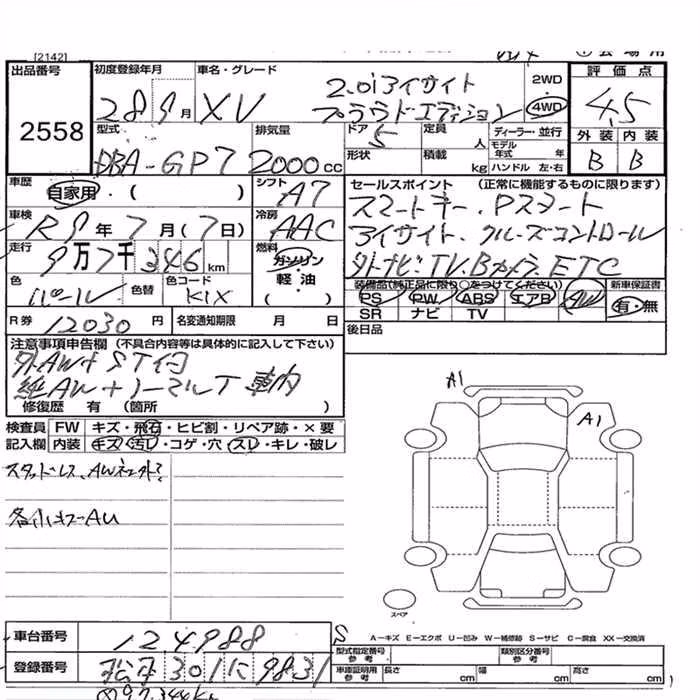 [2142]
出品番号 初度登録年月 車名・グレード 2.0i アイサイト 2WD 評価点
2558 28 9月 XV プラウドエディション 4WD 4.5
型式 排気量 ドア 5 定員 人 ディーラー・並行 外装 内装
DBA-GP7 2000cc 形状 積載 kg モデル年式 年 ハンドル 左・右 B B
車歴 自家用・( ) シフト A7 セールスポイント (正常に機能するものに限ります)
車検 R9年7月(7日) 冷房 AAC スマートキー、Pスタート
走行 9万7千346km 燃料 ガソリン 軽油 ( ) アイサイト、クルーズコントロール
外ナビ、TV、Bカメラ、ETC
色 パール 色替 色コード K1X
装備品(純正品に限り○をつけてください) 新車保証書
PS PW ABS エアB AW 有・無
SR ナビ TV
R券 12030円 名変通知期限 月 日 後日品
注意事項申告欄 (不具合内容等は具体的に記入して下さい)
外AW+ST付
純AW+ノーマルT 車内
修復歴 有 (箇所 )
検査員記入欄 FW キズ・飛石・ヒビ割・リペア跡・×要
内装 キズ・汚レ・コゲ・穴・スレ・キレ・破レ
A1
A1
スペア
車台番号 124988 S
A-キズ E-エクボ U-凹み W-補修跡 S-サビ C-腐食 XX-交換済
登録番号 301 に 9831
型式指定番号 参考 類別区分番号 参考
車庫証明用 参考 長さ cm 幅 cm 高さ cm
97.346km